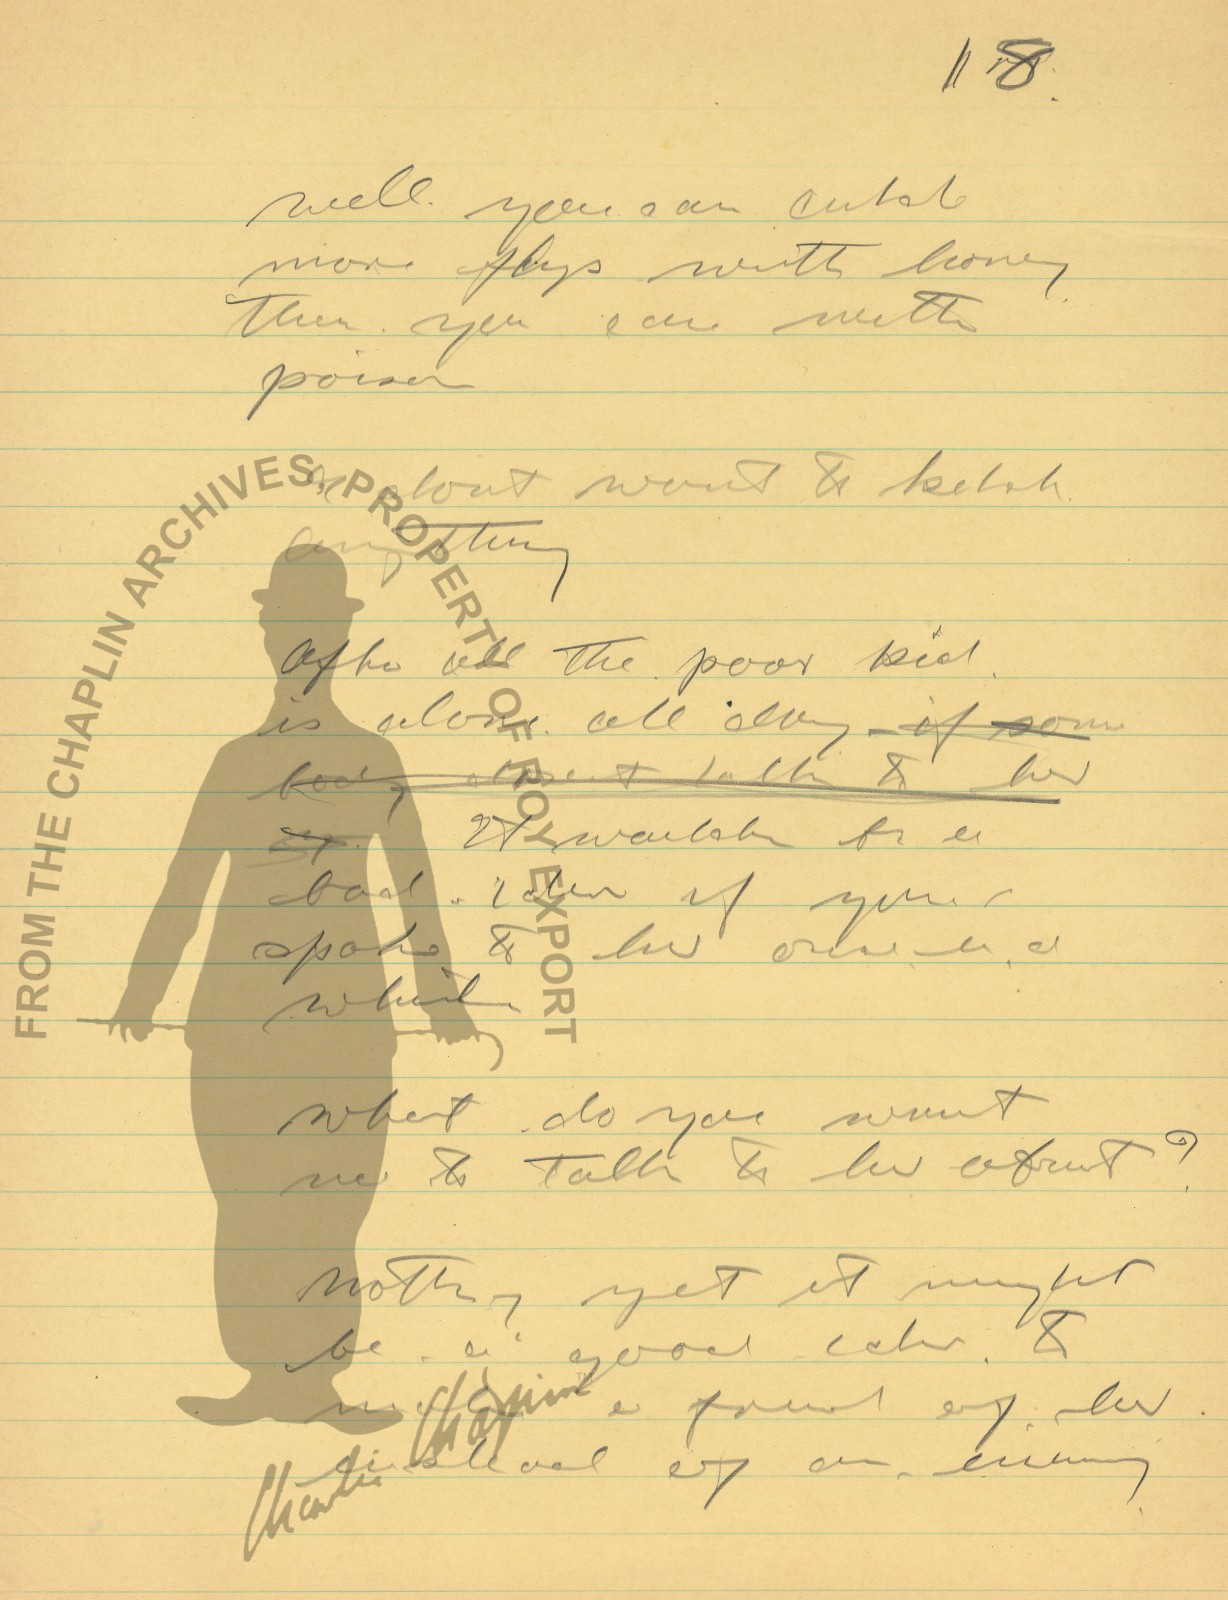 118.
well you can catch
more flys with honey
then you can with
poison
I dont want to ketch
anything
After all the poor kid
is alone all day if some
body doesnt talk to her
It wouldn be a
bad idea if you
spoke to her once in a
while
what do you want
me to talk to her about?
Nothing yet it might
be a good idea to
make a friend of her
instead of an enemy
FROM THE CHAPLIN ARCHIVES, PROPERTY OF ROY EXPORT
Charlie Chaplin